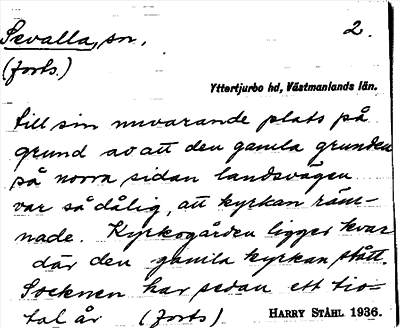 Sevalla, sn. 2.
(forts.)
Yttertjurbo hd, Västmanlands län.
till sin nuvarande plats på
grund av att den gamla grunden
på norra sidan landsvägen
var så dålig, att kyrkan räm-
nade. Kyrkogården ligger kvar
där den gamla kyrkan stått.
Socknen har sedan ett tio-
tal år (forts) HARRY STÅHL 1936.